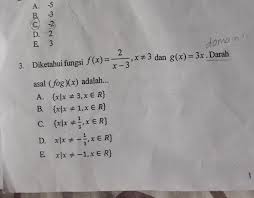 A. -5
B. -3
C. -2
D. 2
E. 3
domain
3. Diketahui fungsi f(x) = 2/(x-3), x ≠ 3 dan g(x) = 3x. Darah
asal (fog)(x) adalah...
A. {x|x ≠ 3, x ∈ R}
B. {x|x ≠ 1, x ∈ R}
C. {x|x ≠ 1/3, x ∈ R}
D. x|x ≠ -1/3, x ∈ R}
E. x|x ≠ -1, x ∈ R}